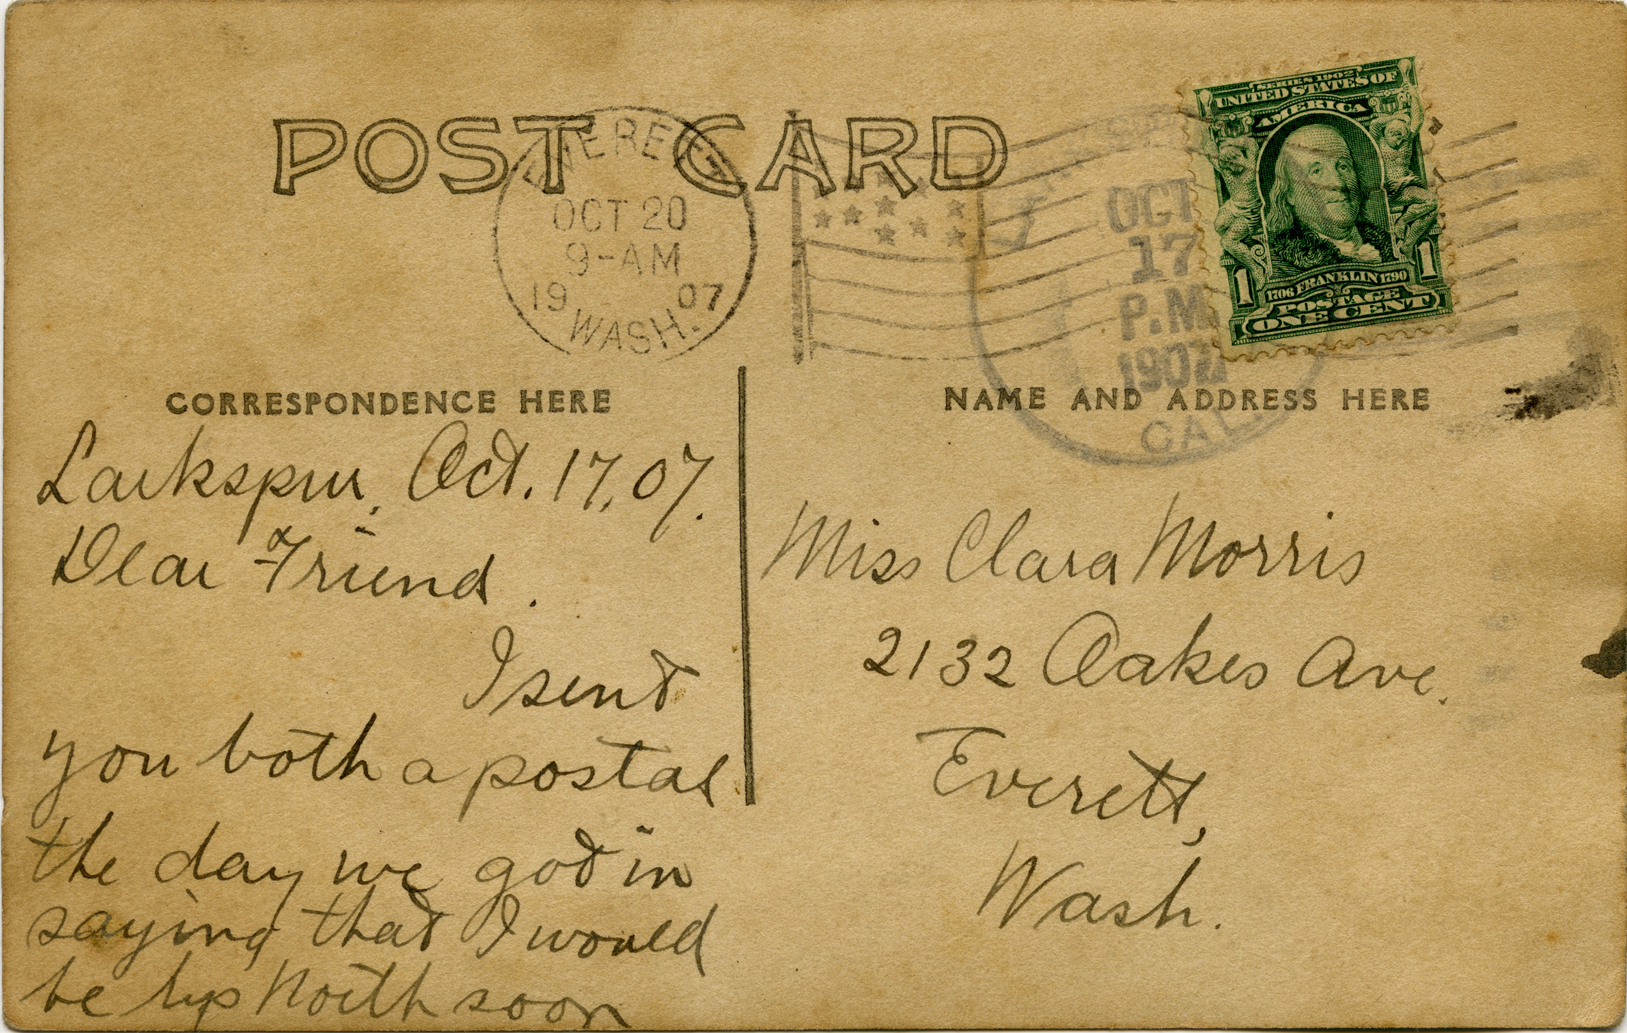 POST CARD
EVERETT
OCT 20
9-AM
19 07
WASH.
OCT
17
P.M
1907
CAL
SERIES 1902
UNITED STATES OF
AMERICA
1 1
1706 FRANKLIN 1790
POSTAGE
ONE CENT
CORRESPONDENCE HERE
Larkspur, Oct. 17, 07.
Dear Friend.
I sent
you both a postal
the day we got in
saying that I would
be up North soon
NAME AND ADDRESS HERE
Miss Clara Morris
2132 Oakes Ave.
Everett,
Wash.